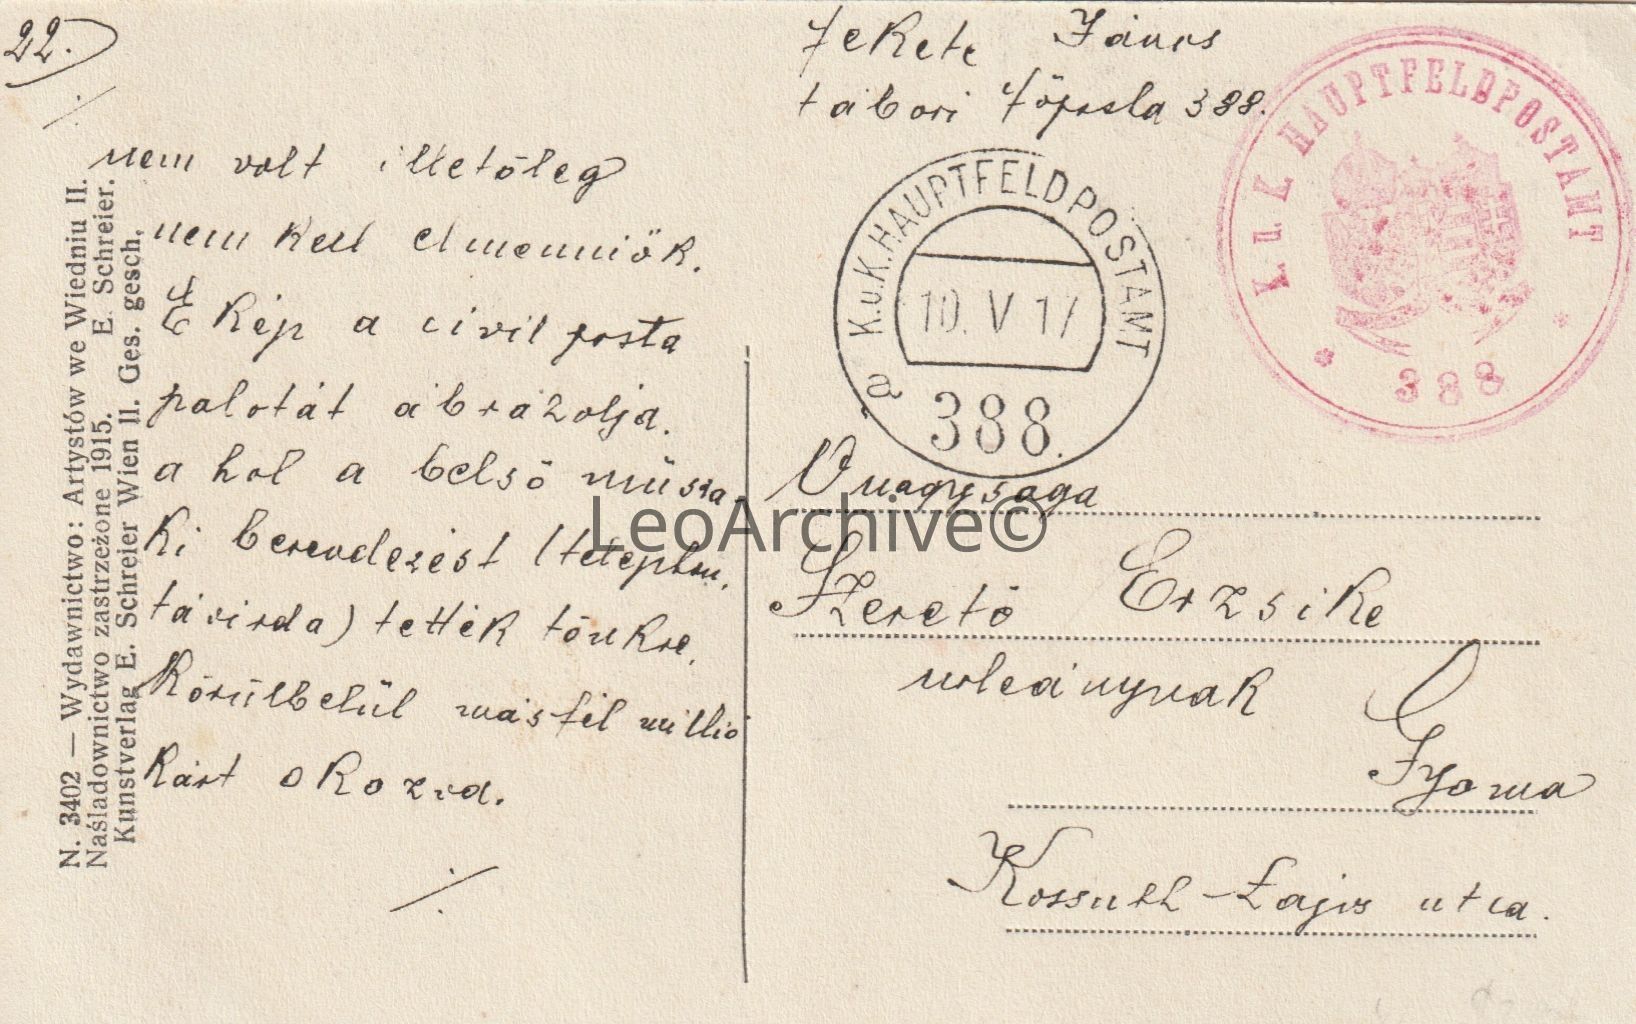 22.
Fekete János
tábori főposta 388.
K. u. K. HAUPTFELDPOSTAMT
388
K.u.K. HAUPTFELDPOSTAMT
10. V 17
a
388.
nem volt illetőleg
nem kell elmenniök.
E kép a civil posta
palotát ábrázolja.
a hol a belső műsza-
ki berendezést (telephon,
távirda) tették tönkre.
Körülbelül másfél millió
kárt okozva.
Őnagysága
Szerető Erzsike
urleánynak
Gyoma
Kossuth-Lajos utca.
N. 3402 — Wydawnictwo: Artystów we Wiedniu II.
Naśladownictwo zastrzeżone 1915. E. Schreier.
Kunstverlag E. Schreier Wien II. Ges. gesch.
LeoArchive©